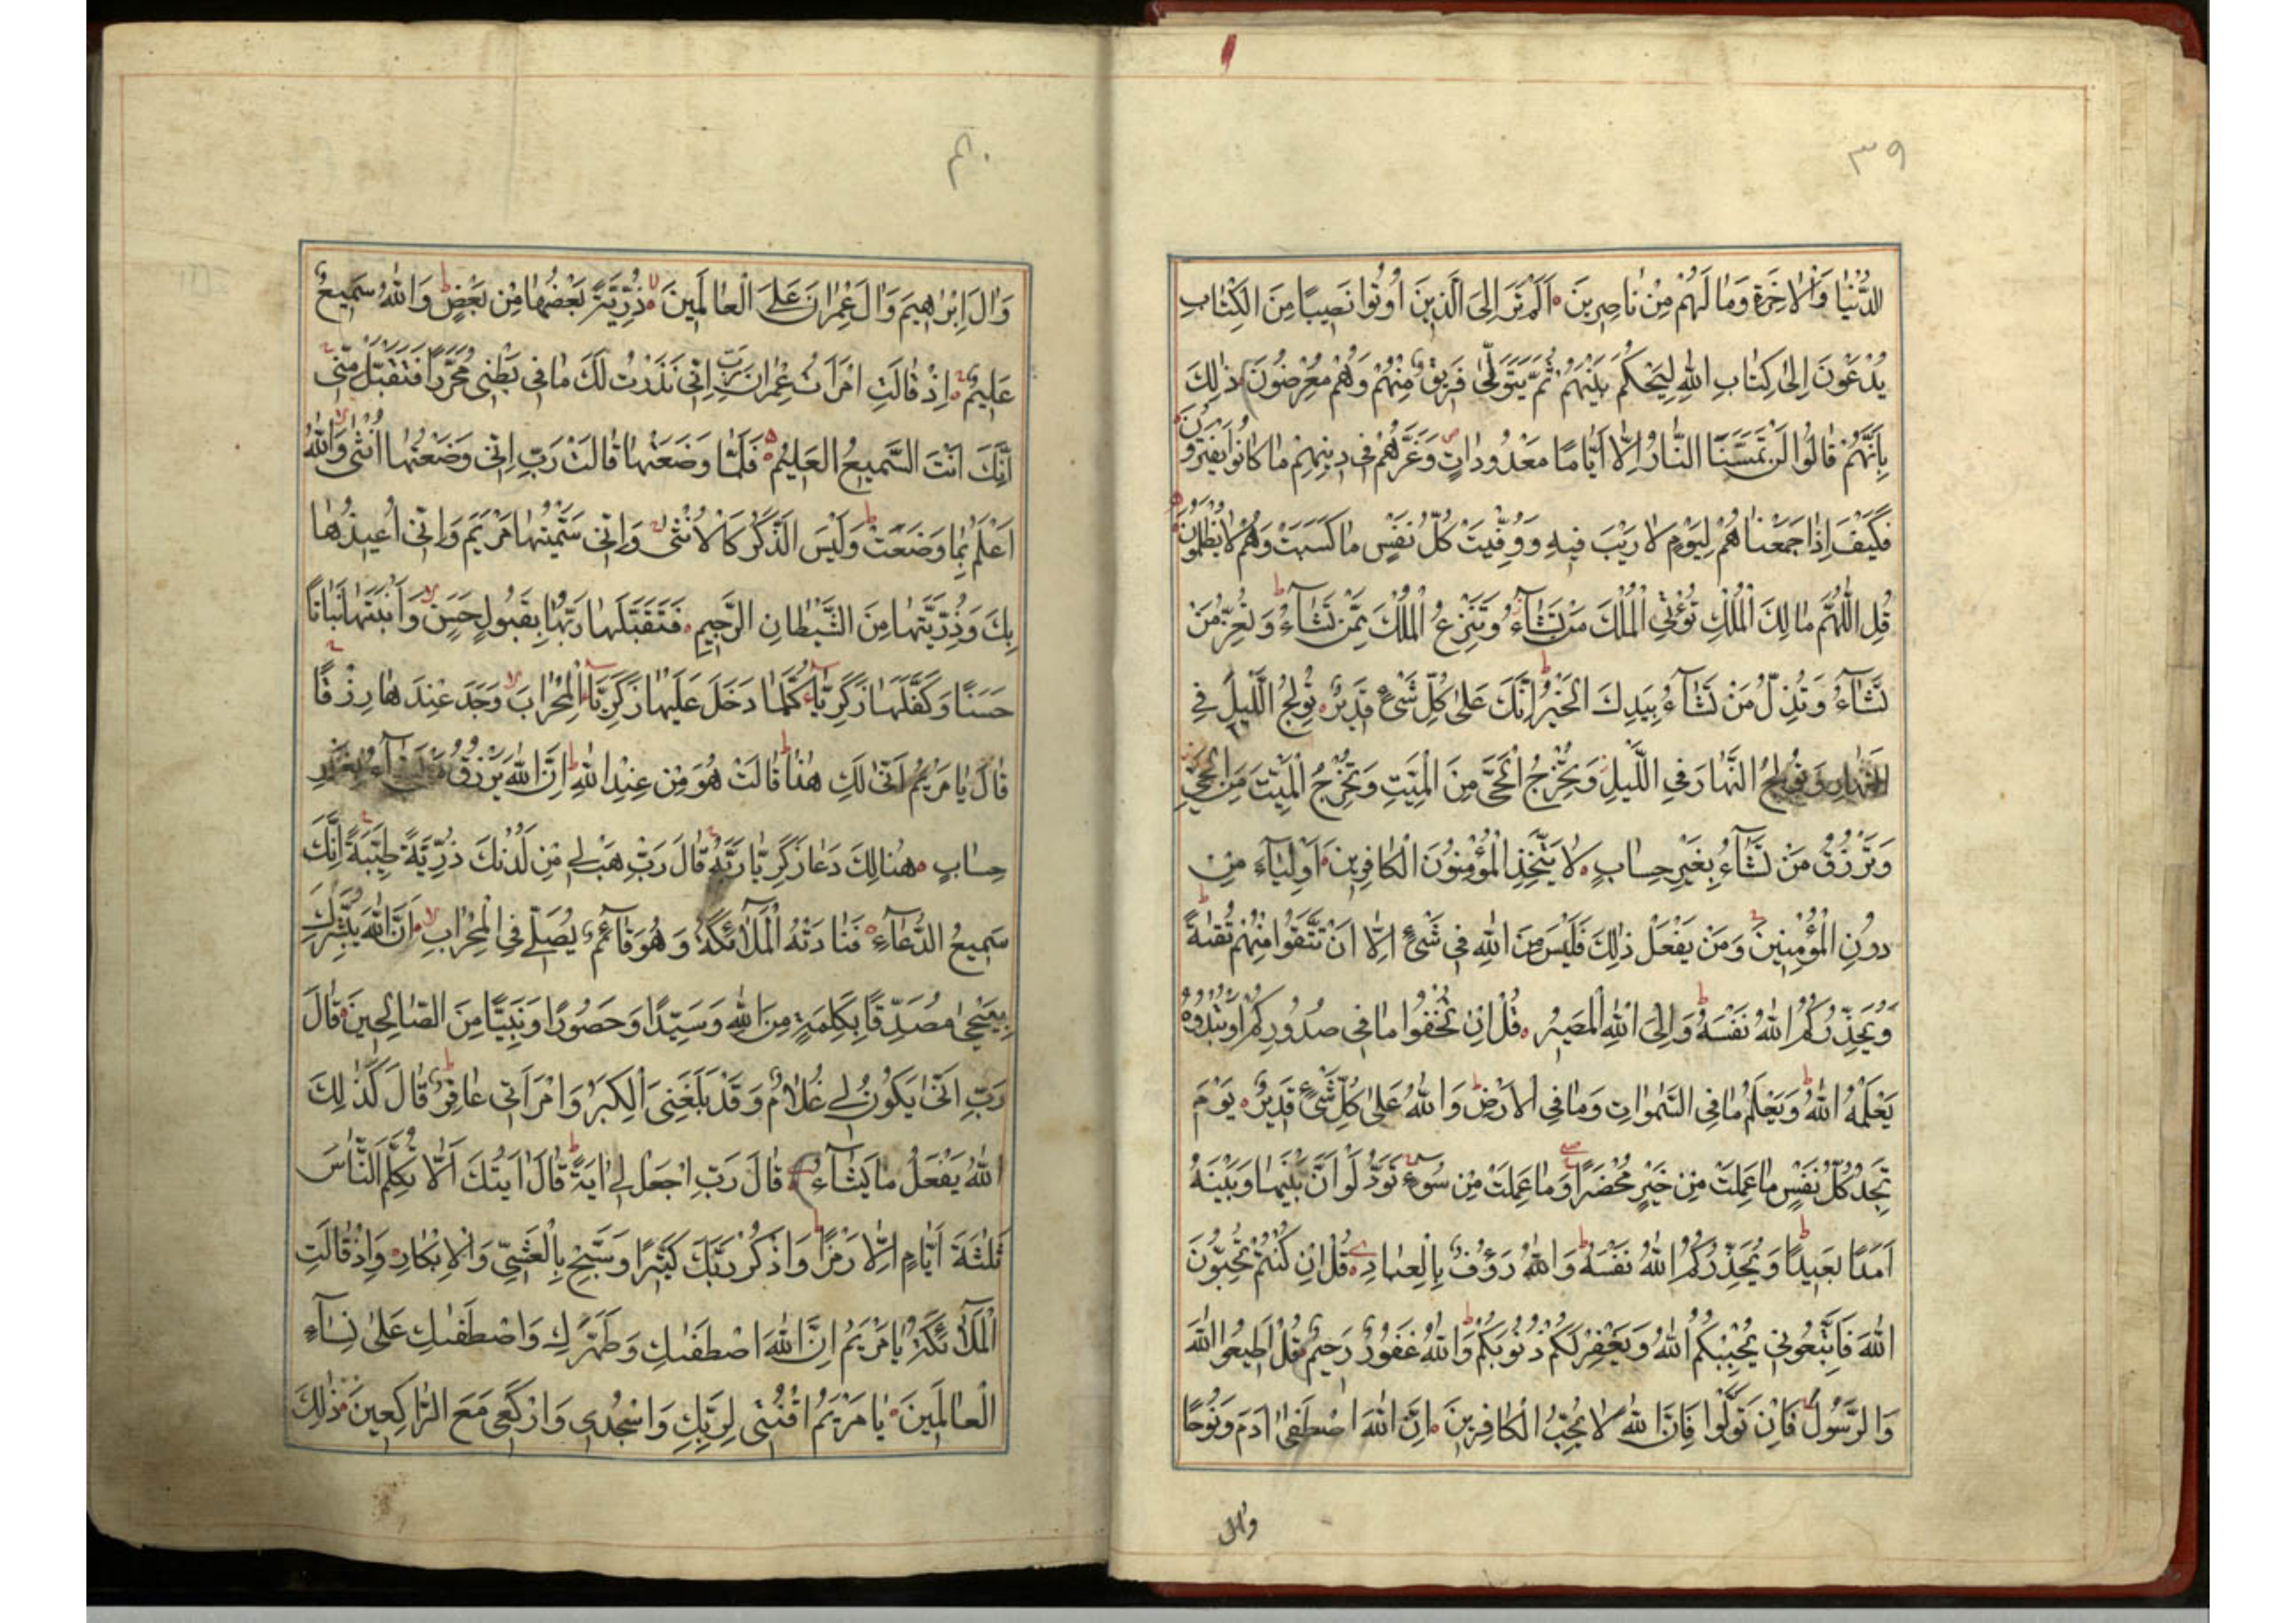 ٣٩
الدُّنْيَا وَالْاٰخِرَةِ وَمَا لَهُمْ مِنْ نَاصِرِينَ اَلَمْ تَرَ اِلَى الَّذِينَ اُوتُوا نَصِيبًا مِنَ الْكِتَابِ
يُدْعَوْنَ اِلٰى كِتَابِ اللّٰهِ لِيَحْكُمَ بَيْنَهُمْ ثُمَّ يَتَوَلّٰى فَرِيقٌ مِنْهُمْ وَهُمْ مُعْرِضُونَ ذٰلِكَ
بِاَنَّهُمْ قَالُوا لَنْ تَمَسَّنَا النَّارُ اِلَّا اَيَّامًا مَعْدُودَاتٍ وَغَرَّهُمْ فِى دِينِهِمْ مَا كَانُوا يَفْتَرُونَ
فَكَيْفَ اِذَا جَمَعْنَاهُمْ لِيَوْمٍ لَا رَيْبَ فِيهِ وَوُفِّيَتْ كُلُّ نَفْسٍ مَا كَسَبَتْ وَهُمْ لَا يُظْلَمُونَ
قُلِ اللّٰهُمَّ مَالِكَ الْمُلْكِ تُؤْتِى الْمُلْكَ مَنْ تَشَآءُ وَتَنْزِعُ الْمُلْكَ مِمَّنْ تَشَآءُ وَتُعِزُّ مَنْ
تَشَآءُ وَتُذِلُّ مَنْ تَشَآءُ بِيَدِكَ الْخَيْرُ اِنَّكَ عَلٰى كُلِّ شَىْءٍ قَدِيرٌ تُولِجُ اللَّيْلَ فِى
النَّهَارِ وَتُولِجُ النَّهَارَ فِى اللَّيْلِ وَتُخْرِجُ الْحَىَّ مِنَ الْمَيِّتِ وَتُخْرِجُ الْمَيِّتَ مِنَ الْحَىِّ
وَتَرْزُقُ مَنْ تَشَآءُ بِغَيْرِ حِسَابٍ لَا يَتَّخِذِ الْمُؤْمِنُونَ الْكَافِرِينَ اَوْلِيَآءَ مِنْ
دُونِ الْمُؤْمِنِينَ وَمَنْ يَفْعَلْ ذٰلِكَ فَلَيْسَ مِنَ اللّٰهِ فِى شَىْءٍ اِلَّا اَنْ تَتَّقُوا مِنْهُمْ تُقٰىةً
وَيُحَذِّرُكُمُ اللّٰهُ نَفْسَهُ وَاِلَى اللّٰهِ الْمَصِيرُ قُلْ اِنْ تُخْفُوا مَا فِى صُدُورِكُمْ اَوْ تُبْدُوهُ
يَعْلَمْهُ اللّٰهُ وَيَعْلَمُ مَا فِى السَّمٰوَاتِ وَمَا فِى الْاَرْضِ وَاللّٰهُ عَلٰى كُلِّ شَىْءٍ قَدِيرٌ يَوْمَ
تَجِدُ كُلُّ نَفْسٍ مَا عَمِلَتْ مِنْ خَيْرٍ مُحْضَرًا وَمَا عَمِلَتْ مِنْ سُوءٍ تَوَدُّ لَوْ اَنَّ بَيْنَهَا وَبَيْنَهُ
اَمَدًا بَعِيدًا وَيُحَذِّرُكُمُ اللّٰهُ نَفْسَهُ وَاللّٰهُ رَؤُفٌ بِالْعِبَادِ قُلْ اِنْ كُنْتُمْ تُحِبُّونَ
اللّٰهَ فَاتَّبِعُونِى يُحْبِبْكُمُ اللّٰهُ وَيَغْفِرْ لَكُمْ ذُنُوبَكُمْ وَاللّٰهُ غَفُورٌ رَحِيمٌ قُلْ اَطِيعُوا اللّٰهَ
وَالرَّسُولَ فَاِنْ تَوَلَّوْا فَاِنَّ اللّٰهَ لَا يُحِبُّ الْكَافِرِينَ اِنَّ اللّٰهَ اصْطَفٰى اٰدَمَ وَنُوحًا
وَاٰلَ
وَاٰلَ اِبْرٰهِيمَ وَاٰلَ عِمْرٰنَ عَلَى الْعَالَمِينَ ذُرِّيَّةً بَعْضُهَا مِنْ بَعْضٍ وَاللّٰهُ سَمِيعٌ
عَلِيمٌ اِذْ قَالَتِ امْرَاَتُ عِمْرٰنَ رَبِّ اِنِّى نَذَرْتُ لَكَ مَا فِى بَطْنِى مُحَرَّرًا فَتَقَبَّلْ مِنِّى
اِنَّكَ اَنْتَ السَّمِيعُ الْعَلِيمُ فَلَمَّا وَضَعَتْهَا قَالَتْ رَبِّ اِنِّى وَضَعْتُهَا اُنْثٰى وَاللّٰهُ
اَعْلَمُ بِمَا وَضَعَتْ وَلَيْسَ الذَّكَرُ كَالْاُنْثٰى وَاِنِّى سَمَّيْتُهَا مَرْيَمَ وَاِنِّى اُعِيذُهَا
بِكَ وَذُرِّيَّتَهَا مِنَ الشَّيْطَانِ الرَّجِيمِ فَتَقَبَّلَهَا رَبُّهَا بِقَبُولٍ حَسَنٍ وَاَنْبَتَهَا نَبَاتًا
حَسَنًا وَكَفَّلَهَا زَكَرِيَّا كُلَّمَا دَخَلَ عَلَيْهَا زَكَرِيَّا الْمِحْرَابَ وَجَدَ عِنْدَهَا رِزْقًا
قَالَ يَا مَرْيَمُ اَنّٰى لَكِ هٰذَا قَالَتْ هُوَ مِنْ عِنْدِ اللّٰهِ اِنَّ اللّٰهَ يَرْزُقُ مَنْ يَشَآءُ بِغَيْرِ
حِسَابٍ هُنَالِكَ دَعَا زَكَرِيَّا رَبَّهُ قَالَ رَبِّ هَبْ لِى مِنْ لَدُنْكَ ذُرِّيَّةً طَيِّبَةً اِنَّكَ
سَمِيعُ الدُّعَآءِ فَنَادَتْهُ الْمَلَآئِكَةُ وَهُوَ قَآئِمٌ يُصَلِّى فِى الْمِحْرَابِ اَنَّ اللّٰهَ يُبَشِّرُكَ
بِيَحْيٰى مُصَدِّقًا بِكَلِمَةٍ مِنَ اللّٰهِ وَسَيِّدًا وَحَصُورًا وَنَبِيًّا مِنَ الصَّالِحِينَ قَالَ
رَبِّ اَنّٰى يَكُونُ لِى غُلَامٌ وَقَدْ بَلَغَنِىَ الْكِبَرُ وَامْرَاَتِى عَاقِرٌ قَالَ كَذٰلِكَ
اللّٰهُ يَفْعَلُ مَا يَشَآءُ قَالَ رَبِّ اجْعَلْ لِى اٰيَةً قَالَ اٰيَتُكَ اَلَّا تُكَلِّمَ النَّاسَ
ثَلٰثَةَ اَيَّامٍ اِلَّا رَمْزًا وَاذْكُرْ رَبَّكَ كَثِيرًا وَسَبِّحْ بِالْعَشِىِّ وَالْاِبْكَارِ وَاِذْ قَالَتِ
الْمَلَآئِكَةُ يَا مَرْيَمُ اِنَّ اللّٰهَ اصْطَفٰىكِ وَطَهَّرَكِ وَاصْطَفٰىكِ عَلٰى نِسَآءِ
الْعَالَمِينَ يَا مَرْيَمُ اقْنُتِى لِرَبِّكِ وَاسْجُدِى وَارْكَعِى مَعَ الرَّاكِعِينَ ذٰلِكَ